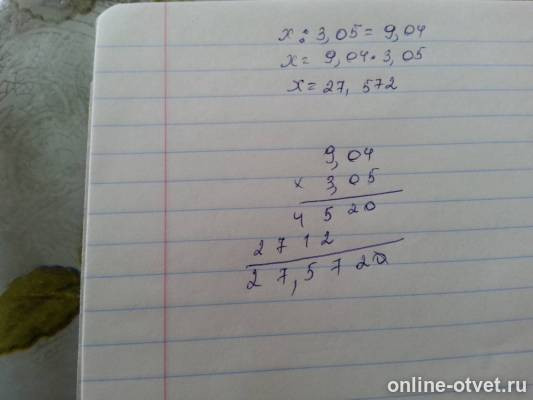 x : 3,05 = 9,04
x = 9,04 · 3,05
x = 27, 572
9,04
× 3,05
4 5 2 0
2 7 1 2
2 7, 5 7 2 0
online-otvet.ru